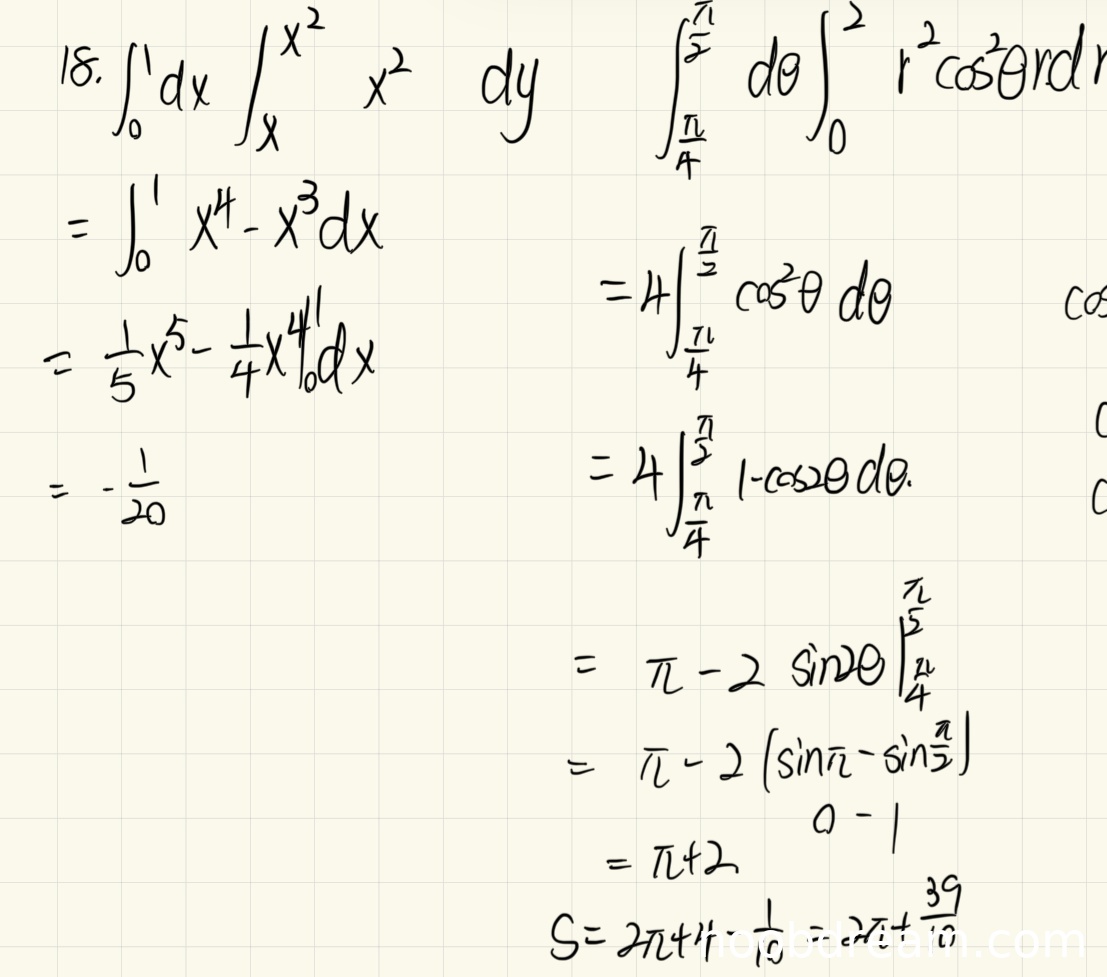 18. ∫₀¹ dx ∫ₓ^{x²} x² dy
= ∫₀¹ x⁴ - x³ dx
= 1/5 x⁵ - 1/4 x⁴ |₀¹ dx
= - 1/20
∫_{π/4}^{π/2} dθ ∫₀² r² cos²θ r dr
= 4 ∫_{π/4}^{π/2} cos²θ dθ
= 4 ∫_{π/4}^{π/2} 1-cos2θ dθ.
= π - 2 sin2θ |_{π/4}^{π/2}
= π - 2 (sinπ - sin π/2)
0 - 1
= π+2
S = 2π+4 - 1/10 = 2π + 39/10
cos